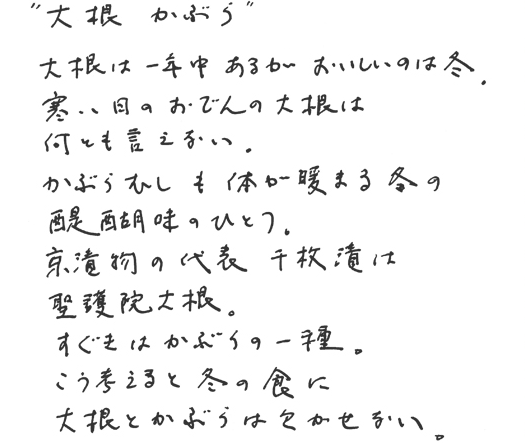 "大根 かぶら"
大根は一年中あるが おいしいのは冬.
寒い日のおでんの大根は
何とも言えない.
かぶらむしも体が暖まる冬の
醍醐味のひとつ.
京漬物の代表 千枚漬は
聖護院大根。
すぐきはかぶらの一種。
こう考えると冬の食に
大根とかぶらは欠かせない。